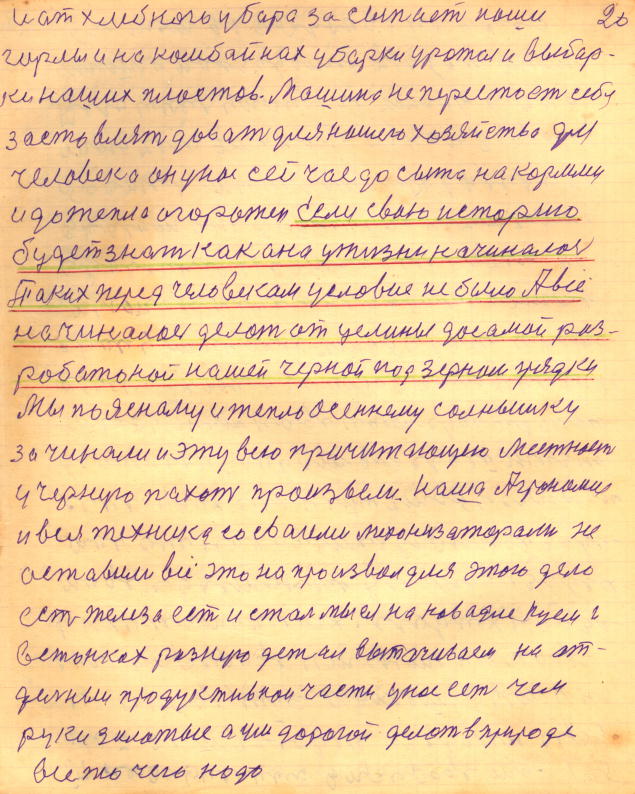 и от хлебного убара засыпает наши 20
гормы и на комбайнах убарки урожая и выбар-
ки наших плостов. Машина не перестоет себу
заставлят доват для нашего хозяйства для
человека он унас сей час до сыта на кормлин
и до тепла огорожен Если свою историю
будет знат как ана у жизни начиналос
Таких перед человекам условие не было А всё
начиналос делот от целины до самой раз-
роботоной нашей черной под зерном грядки
Мы по ясному и тепло осеннему солнышку
зачинали и эту всю причитающею местност
у черную пахот произвели. Наша Агрономие
и вся техника со своими механизаторами не
оставили всё это на произвол для этого дело
ест железа ест и стал мысл на ковадле куем и
встонках разную детал вытачиваем на от-
делный продуктивной части унас ест чем
руки золотые а ум дорогой делот в природе
все то чего надо